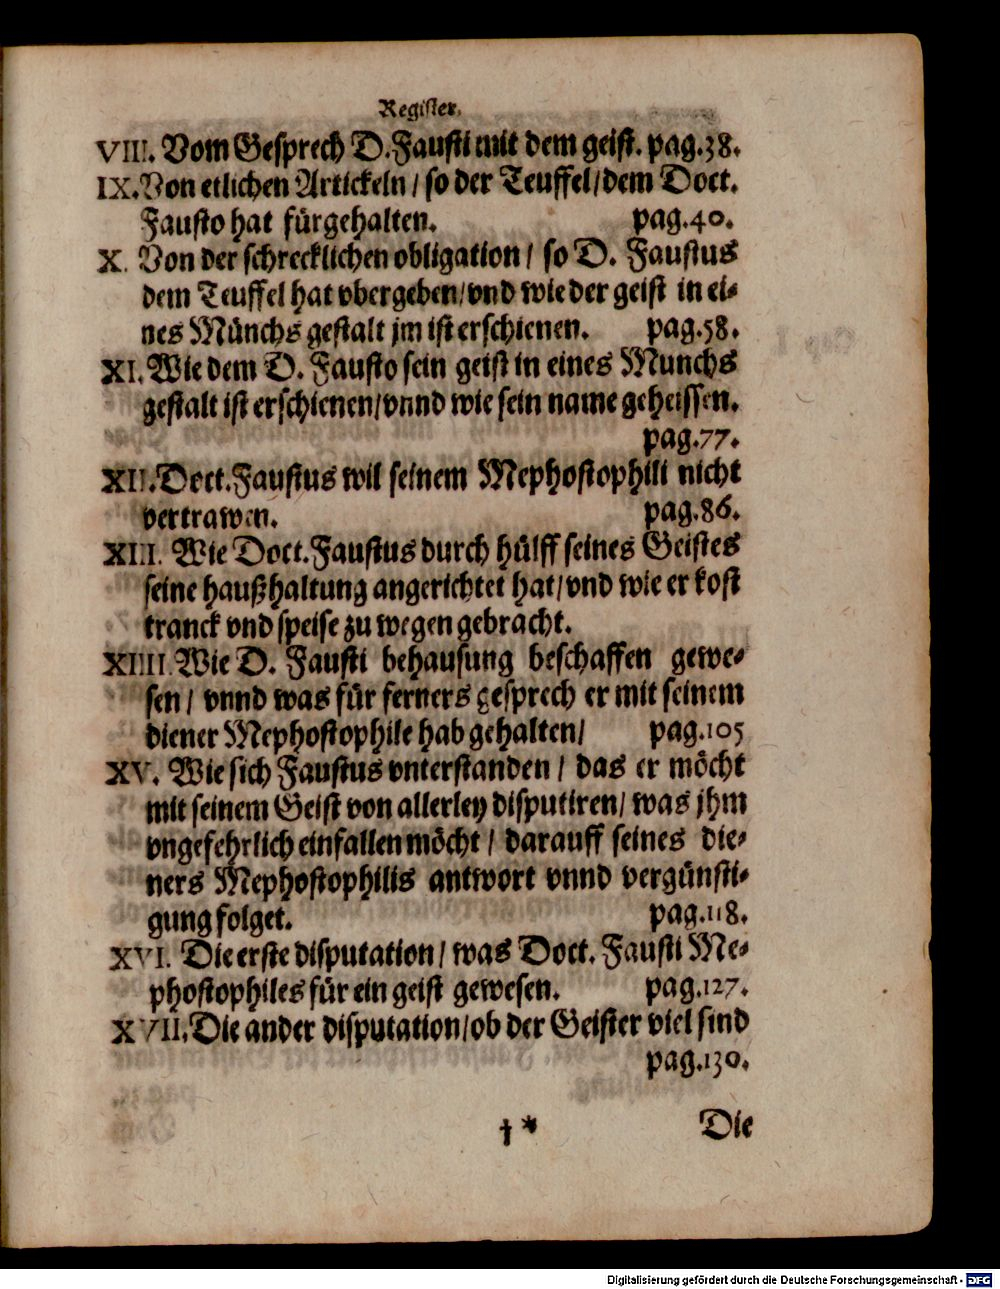 Register.
VIII. Vom Gesprech D. Fausti mit dem geist. pag.38.
IX. Von etlichen Artickeln / so der Teuffel / dem Doct.
Fausto hat fürgehalten. pag.40.
X. Von der schrecklichen obligation / so D. Faustus
dem Teuffel hat vbergeben / vnd wie der geist in ei-
nes Münchs gestalt jm ist erschienen. pag.58.
XI. Wie dem D. Fausto sein geist in eines Munchs
gestalt ist erschienen / vnnd wie sein name geheissen.
pag.77.
XII. Doct. Faustus wil seinem Mephostophili nicht
vertrawen. pag.86.
XIII. Wie Doct. Faustus durch hülff seines Geistes
seine haußhaltung angerichtet hat / vnd wie er kost
tranck vnd speise zu wegen gebracht.
XIIII. Wie D. Fausti behausung beschaffen gewe-
sen / vnnd was für ferners gesprech er mit seinem
diener Mephostophile hab gehalten / pag.105
XV. Wie sich Faustus vnterstanden / das er möcht
mit seinem Geist von allerley disputiren / was jhm
vngefehrlich einfallen möcht / darauff seines die-
ners Mephostophilis antwort vnnd vergünsti-
gung folget. pag.118.
XVI. Die erste disputation / was Doct. Fausti Me-
phostophiles für ein geist gewesen. pag.127.
XVII. Die ander disputation / ob der Geister viel sind
pag.130.
† * Die
Digitalisierung gefördert durch die Deutsche Forschungsgemeinschaft - DFG